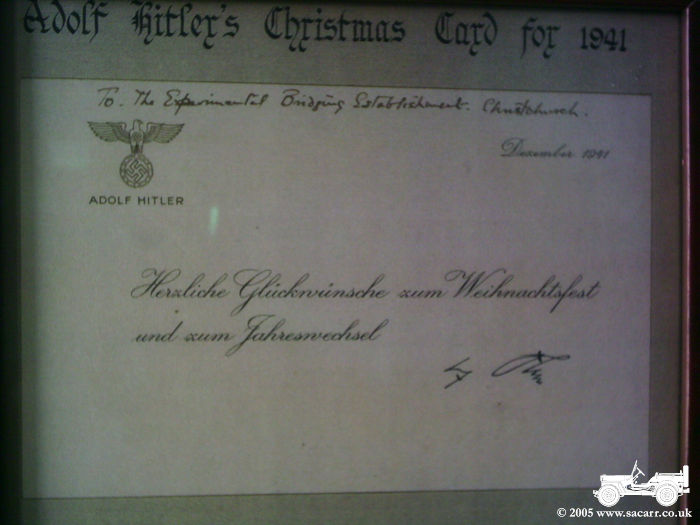 Adolf Hitler's Christmas Card for 1941
To. The Experimental Bridging Establishment. Christchurch.
Dezember 1941
ADOLF HITLER
Herzliche Glückwünsche zum Weihnachtsfest
und zum Jahreswechsel
© 2005 www.sacarr.co.uk